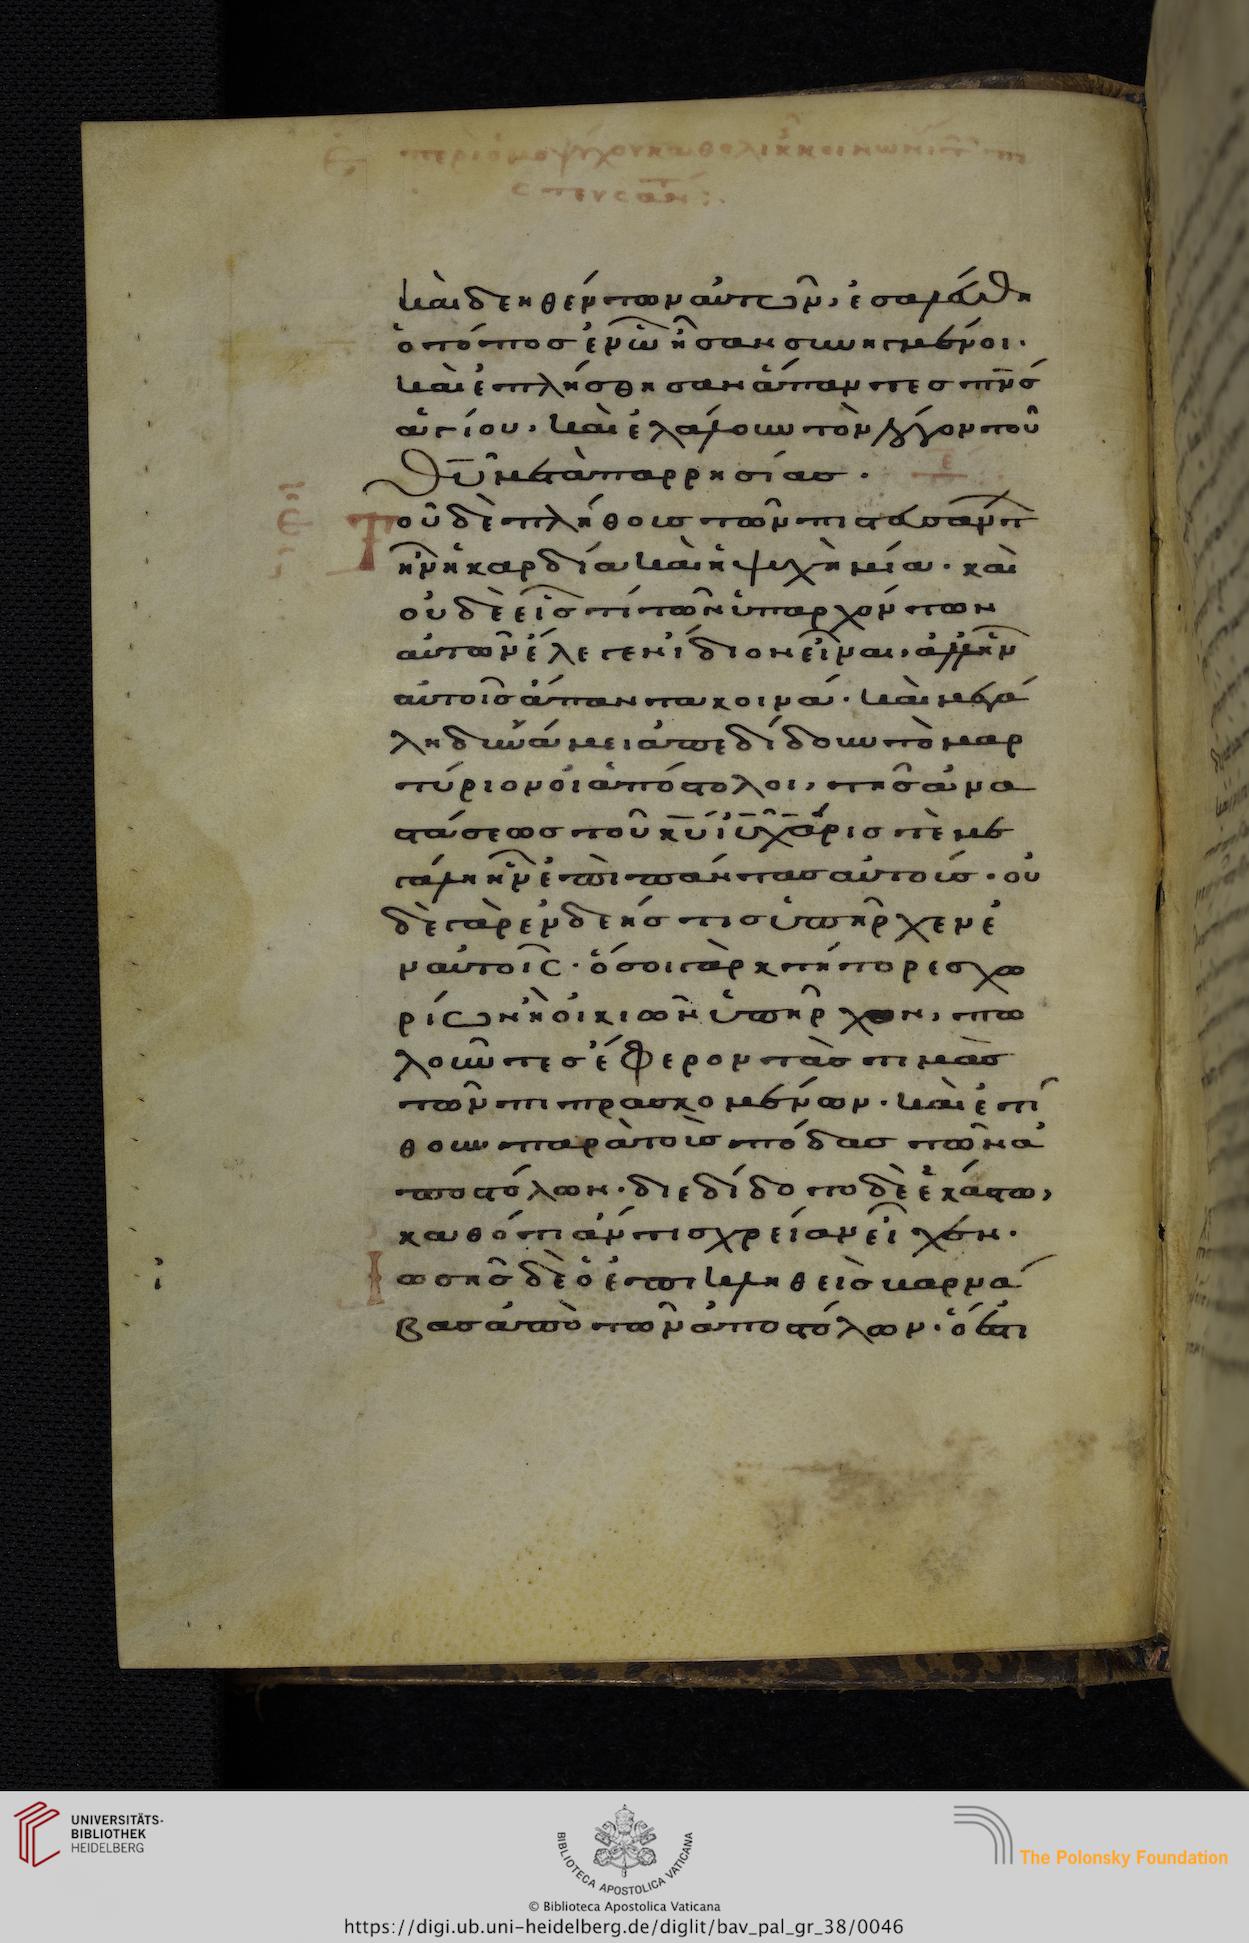 περὶ ὁμοψύχου καθολικ κοινωνί
καὶ δεηθέντων αὐτῶν, ἐσαλεύθη
ὁ τόπος ἐν ᾧ ἦσαν συνηγμένοι.
καὶ ἐπλήσθησαν ἅπαντες πνσ
ἁγίου. καὶ ἐλάλουν τὸν λόγον τοῦ
θυ μετὰ παρρησίας.
Τοῦ δὲ πλήθους τῶν πιστευσάντ
ἦν ἡ καρδία καὶ ἡ ψυχὴ μία. καὶ
οὐδὲ εἷς τί τῶν ὑπαρχόντων
αὐτῶν ἔλεγεν ἴδιον εἶναι, ἀλλ' ἦν
αὐτοῖς ἅπαντα κοινά. καὶ μεγά
λη δυνάμει ἀπεδίδουν τὸ μαρ
τύριον οἱ ἀπόστολοι, τῆς ἀνα
στάσεως τοῦ κυ ιυ χάρις τὲ με
γάλη ἦν ἐπὶ πάντας αὐτούς. οὐ
δὲ γὰρ ἐνδεής τις ὑπῆρχεν ἐ
ν αὐτοῖς. ὅσοι γὰρ κτήτορες χω
ρίων ἢ οἰκιῶν ὑπῆρχον, πω
λοῦντες ἔφερον τὰς τιμὰς
τῶν πιπρασκομένων. καὶ ἐτί
θουν παρὰ τοὺς πόδας τῶν ἀ
ποστόλων. διεδίδοτο δὲ ἑκάστω,
καθότι ἄν τις χρείαν εἶχεν.
Ἰωσῆς δὲ ὁ ἐπικληθεὶς βαρνά
βας ἀπὸ τῶν ἀποστόλων. ὅ ἐστι
UNIVERSITÄTS-
BIBLIOTHEK
HEIDELBERG
BIBLIOTECA APOSTOLICA VATICANA
The Polonsky Foundation
© Biblioteca Apostolica Vaticana
https://digi.ub.uni-heidelberg.de/diglit/bav_pal_gr_38/0046